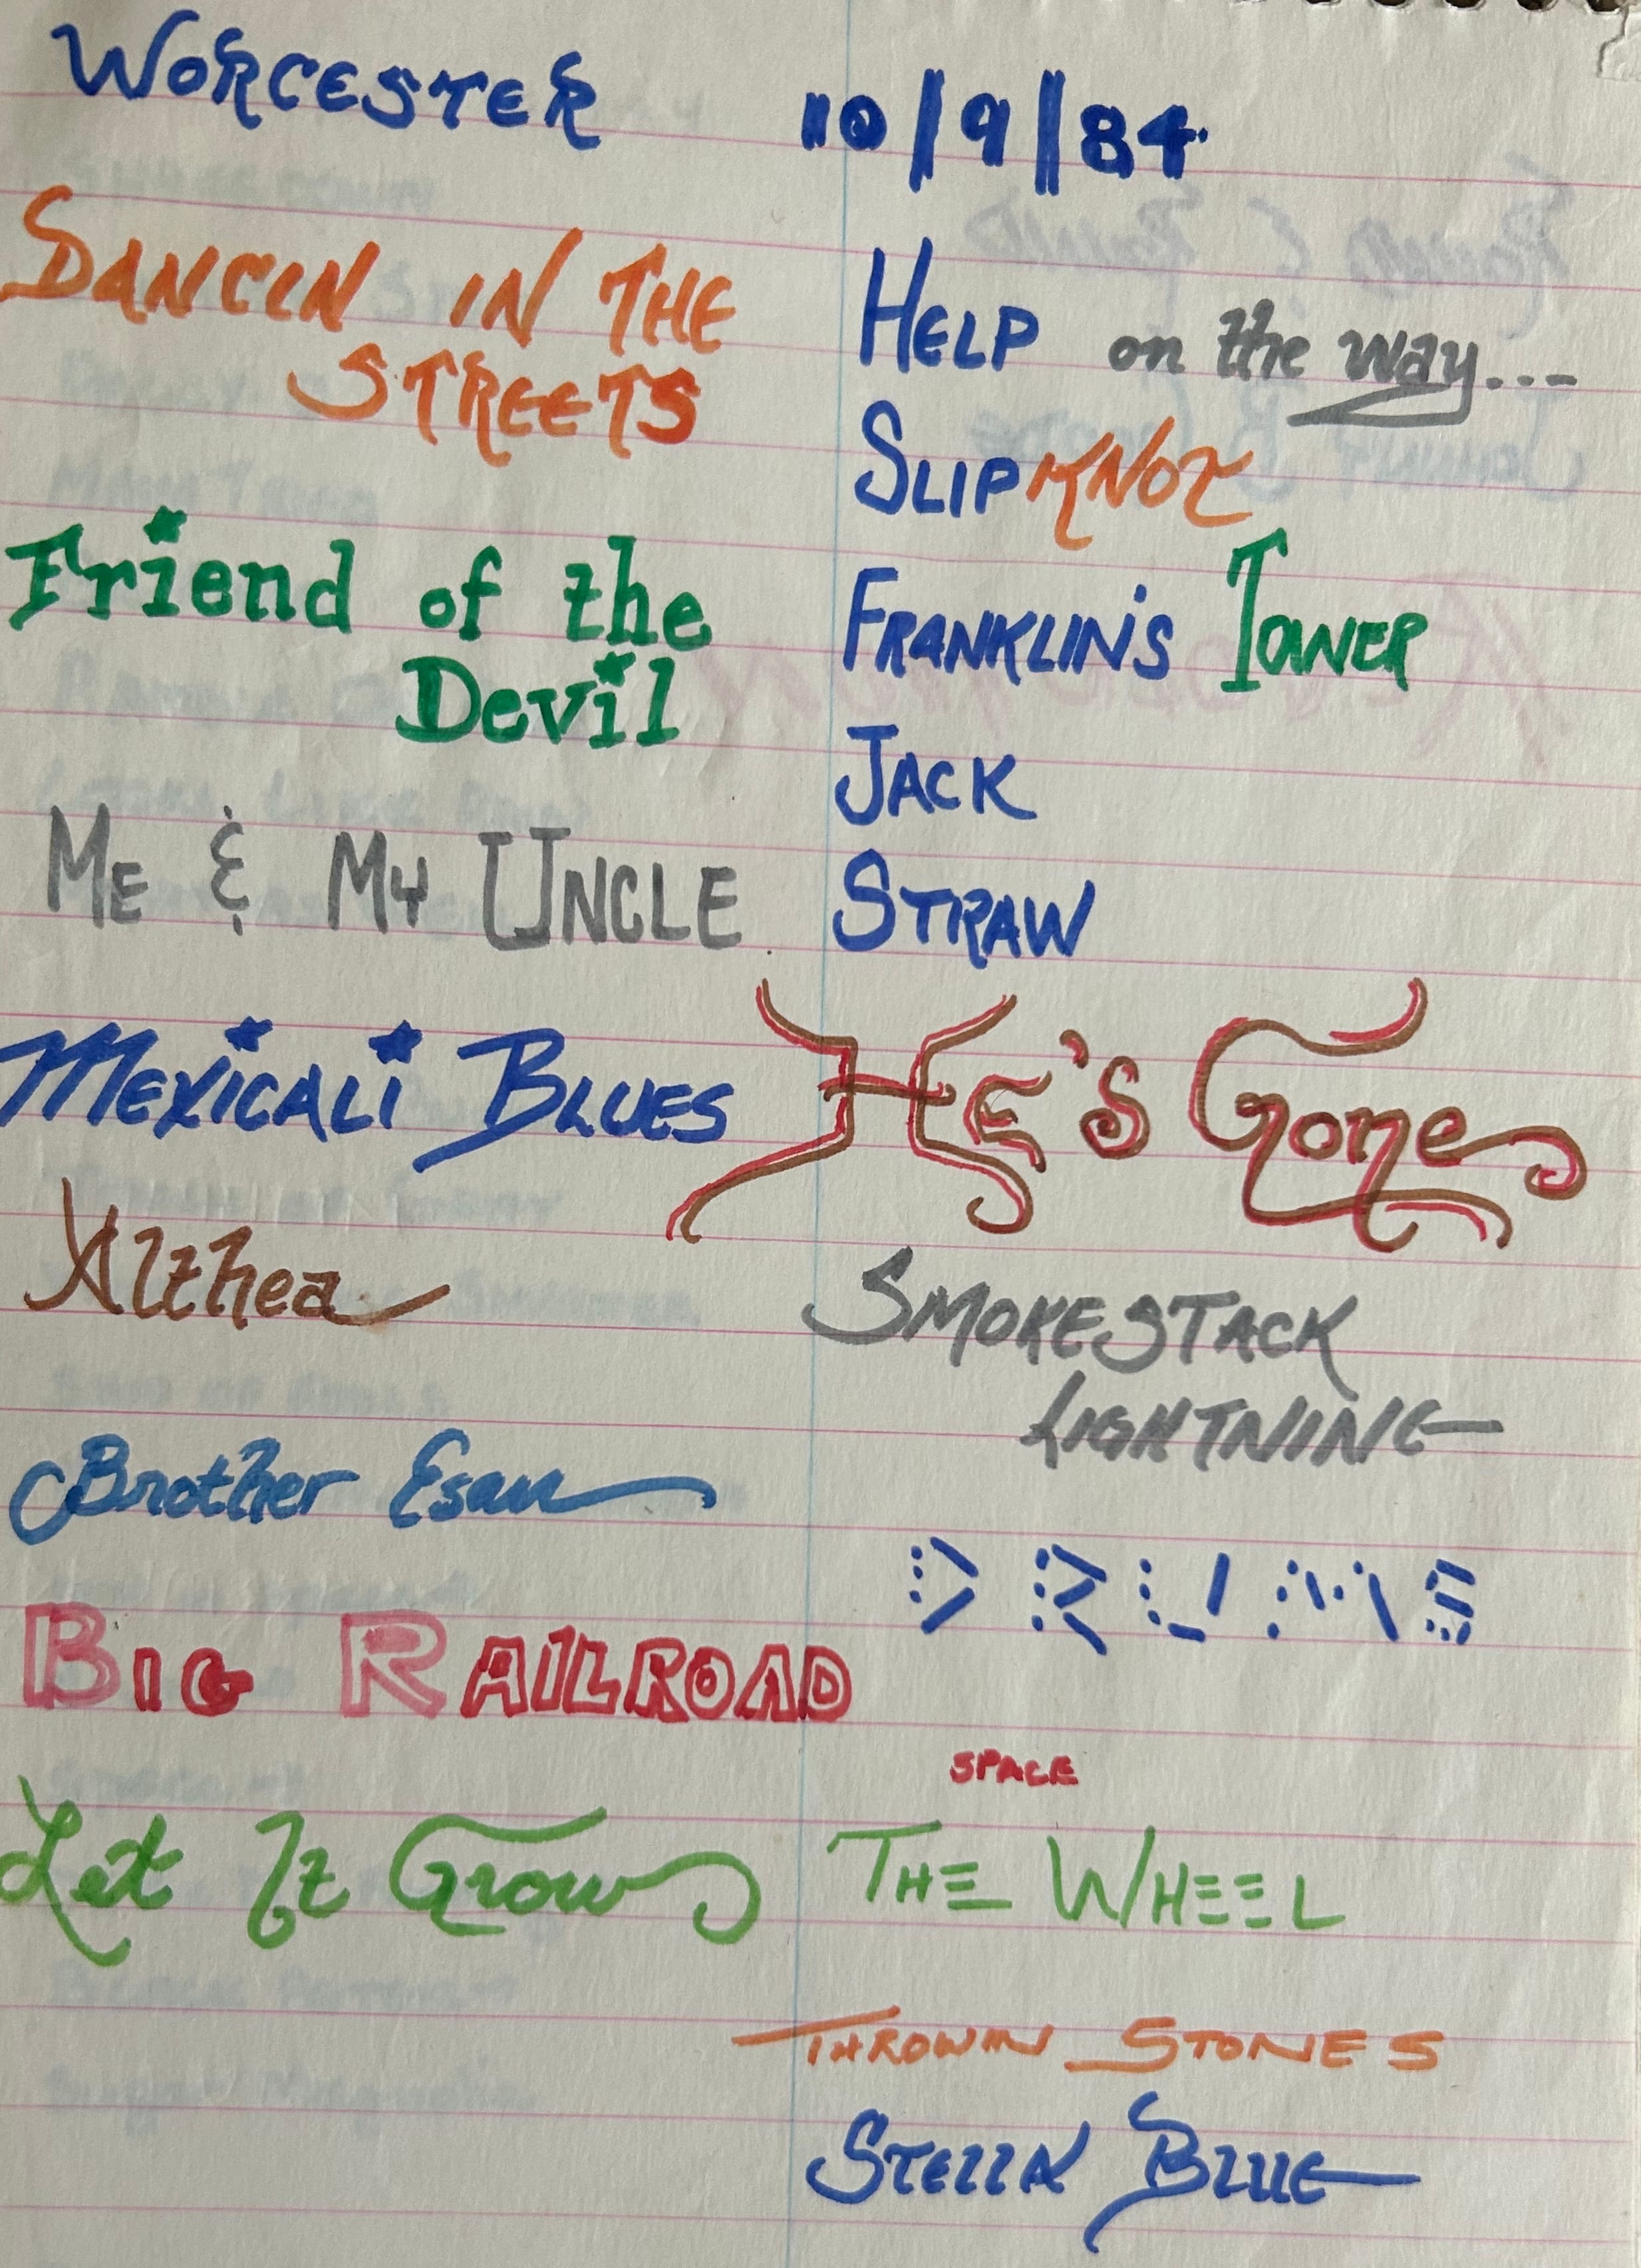 WORCESTER 10/9/84
DANCIN IN THE
STREETS
Friend of the
Devil
ME & MY UNCLE
MEXICALI BLUES
Althea
Brother Esau
BIG RAILROAD
Let It Grow
HELP on the way...
SLIPKNOT
FRANKLIN'S TOWER
JACK
STRAW
HE'S Gone
SMOKESTACK
LIGHTNING
DRUMS
SPACE
THE WHEEL
THROWIN STONES
STELLA BLUE